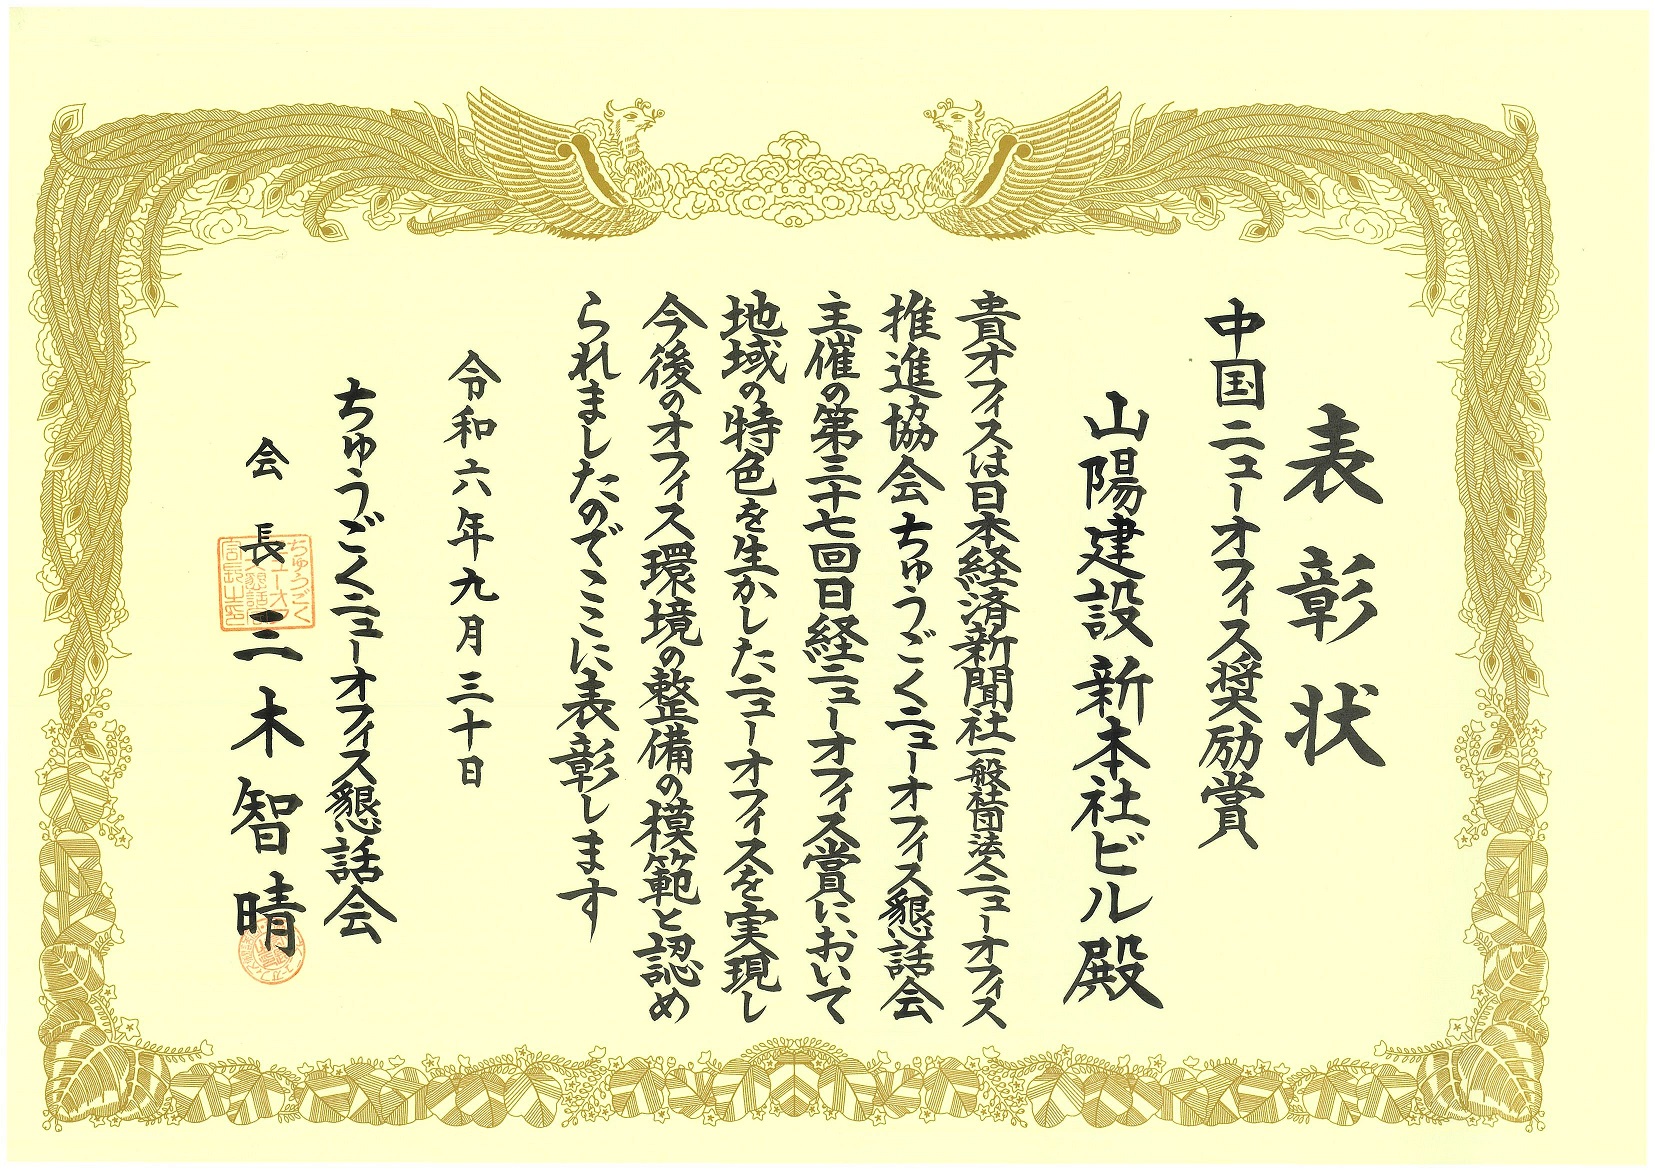 表彰状
中国ニューオフィス奨励賞
山陽建設新本社ビル殿
貴オフィスは日本経済新聞社一般社団法人ニューオフィス
推進協会ちゅうごくニューオフィス懇話会
主催の第三十七回日経ニューオフィス賞において
地域の特色を生かしたニューオフィスを実現し
今後のオフィス環境の整備の模範と認め
られましたのでここに表彰します
令和六年九月三十日
ちゅうごくニューオフィス懇話会
会長 三木智晴